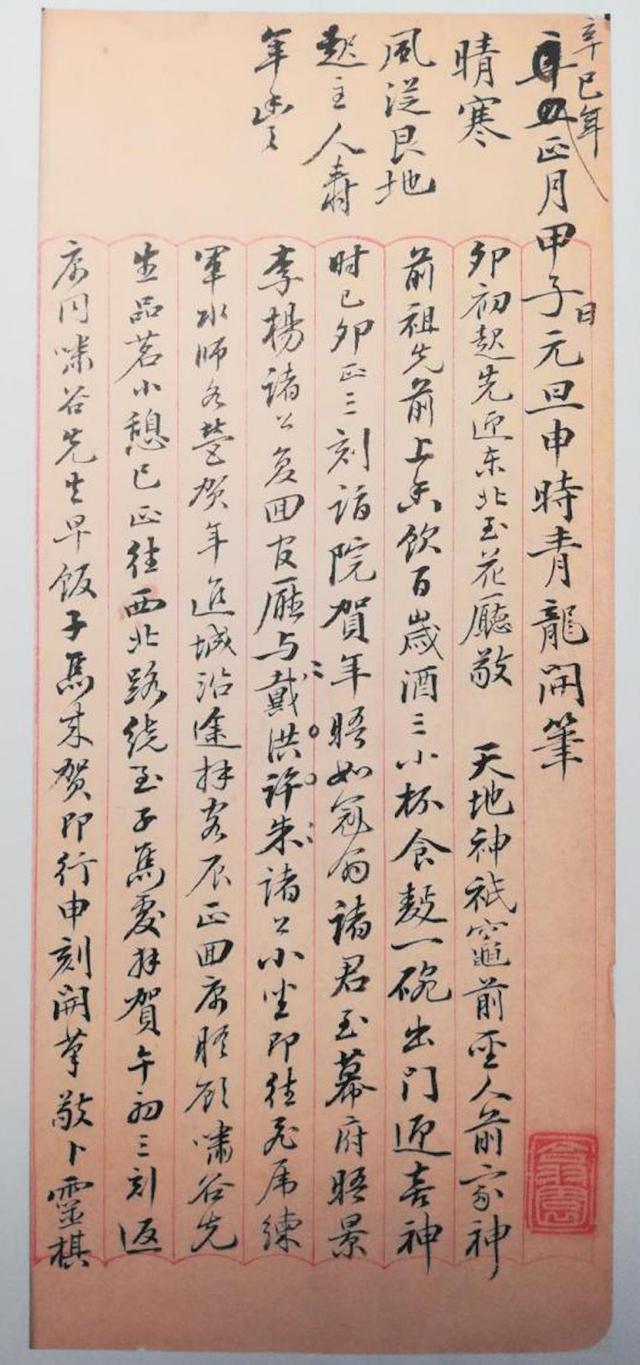 辛巳年
正月甲子日元旦申時青龍開筆
晴寒
風從艮地
起主人壽
年豐
卯初起先迎东北至花廳敬 天地神祇竈前聖人前家神
前祖先前上香飲百歲酒三小杯食麫一碗出門迎喜神
时已卯正三刻詣院賀年晤如冠翁諸君至幕府晤景
李楊諸公复回官廳与戴洪許朱諸公小坐即往虎威練
軍水師各營賀年進城沿途拜客辰正回寓晤顧嘯谷先
生品茗小憩巳正往西北路绕至子馬處拜賀午初三刻返
寓同嘯谷先生早饭子馬来賀即行申刻開筆敬卜靈棋